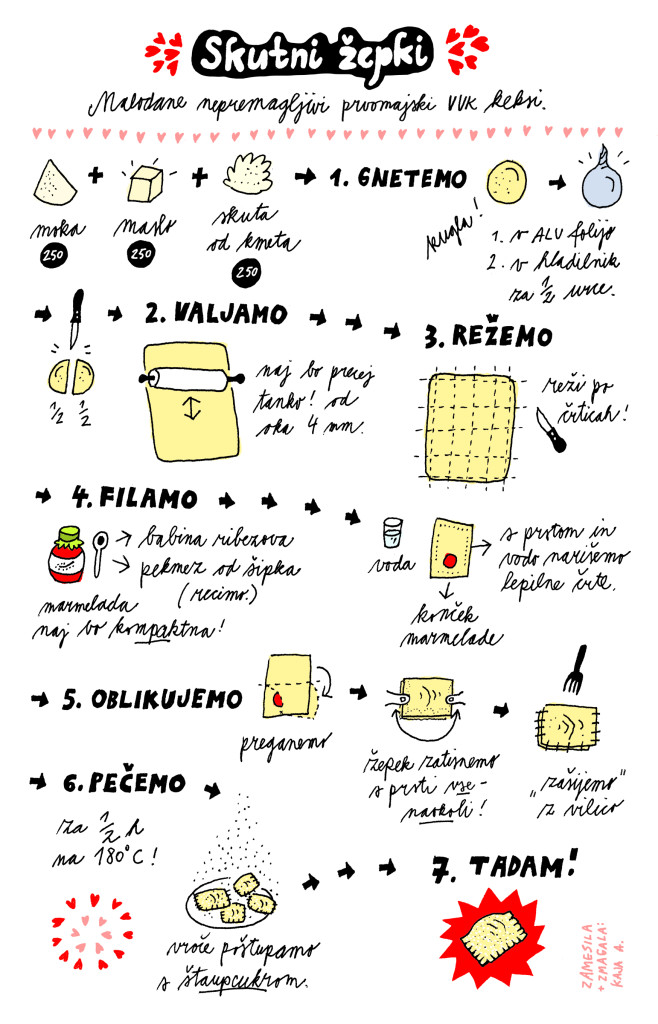 Skutni žepki
Malodane nepremagljivi prvomajski VVK keksi.
+ +
1. GNETEMO
moka
250
maslo
250
skuta
od kmeta
250
kugla!
1. v ALU folijo
2. v hladilnik
za 1/2 urce.
1/2 1/2
2. VALJAMO
naj bo precej
tanko! od
oka 4 mm.
3. REŽEMO
reži po
črticah!
4. FILAMO
babina ribezova
pekmez od šipka
(recimo.)
marmelada
naj bo kompaktna!
voda
s prstom in
vodo narišemo
lepilne črte.
konček
marmelade
5. OBLIKUJEMO
preganemo
žepek zatisnemo
s prsti vse-
naokoli!
„zašijemo”
z vilico
6. PEČEMO
za 1/2 h
na 180°C!
vroče poštupamo
s štaupcukrom.
7. TADAM!
ZAMESILA
+ ZMAGALA:
KAJA A.